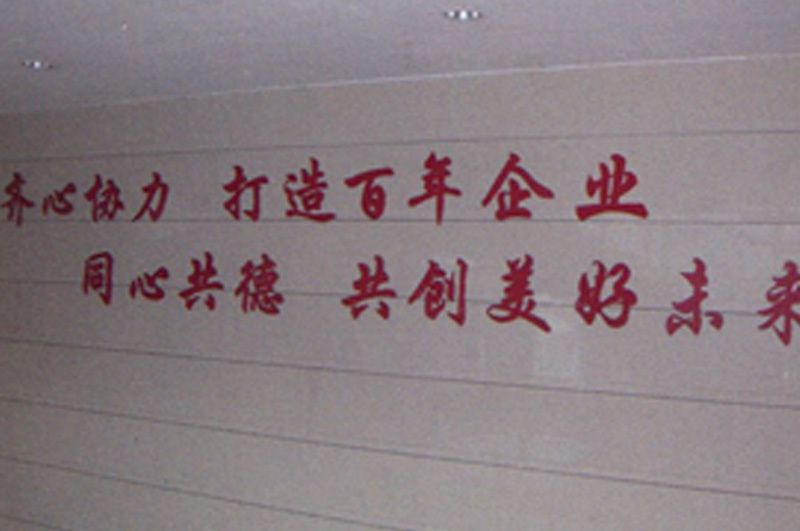 齐心协力 打造百年企业
同心共德 共创美好未来